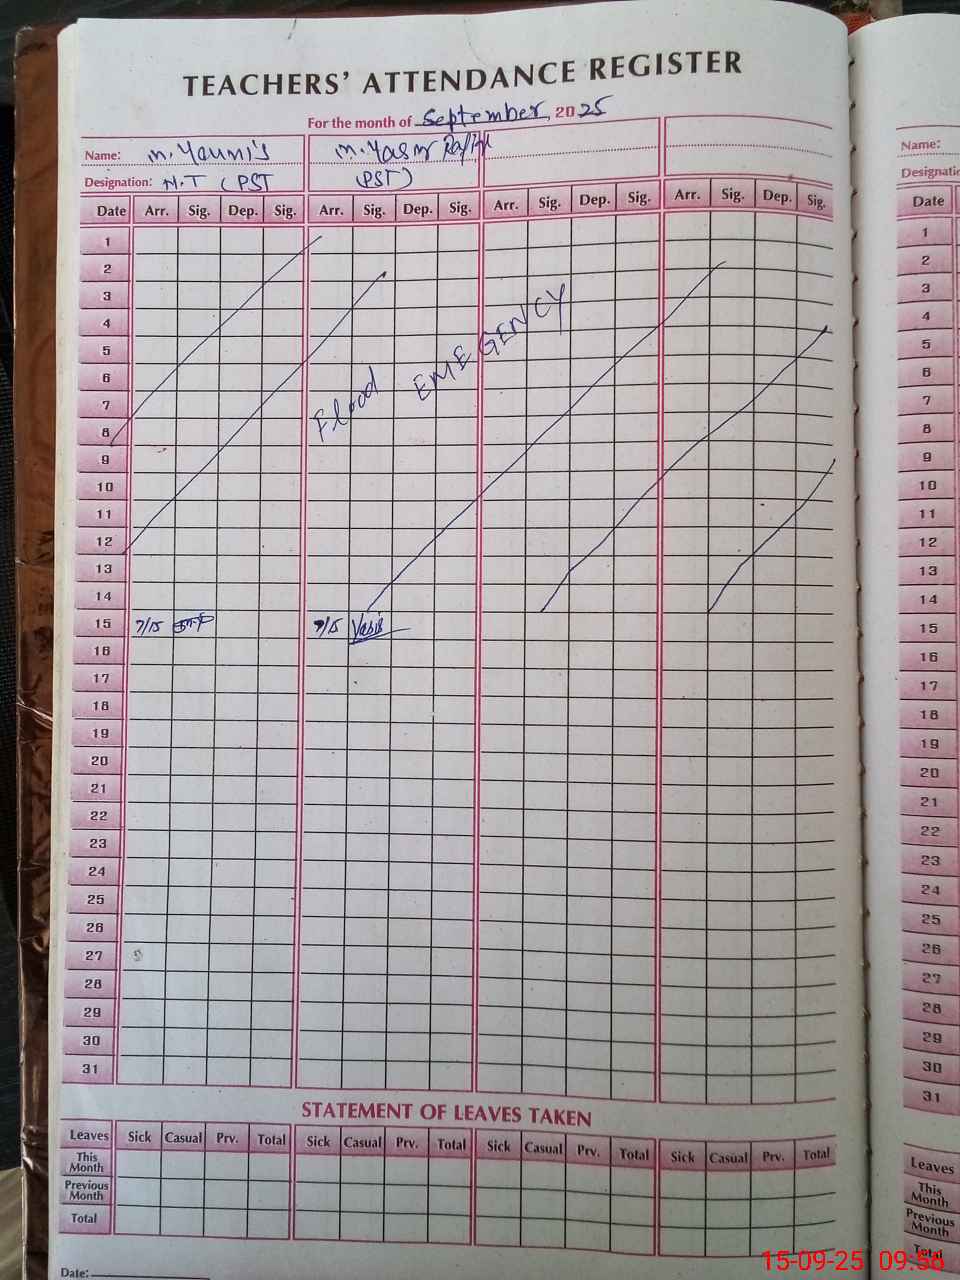 TEACHERS' ATTENDANCE REGISTER
For the month of September, 2025
Name: M. Younis M. Yasir
Designation: H.T (PST (PST)
Date Arr. Sig. Dep. Sig. Arr. Sig. Dep. Sig. Arr. Sig. Dep. Sig. Arr. Sig. Dep. Sig.
1
2
3
4
5
6
7
8
9
10
11
12
13
14
Flood EMEGENCY
15 7/15 7/15
16
17
18
19
20
21
22
23
24
25
26
27
28
29
30
31
STATEMENT OF LEAVES TAKEN
Leaves Sick Casual Prv. Total Sick Casual Prv. Total Sick Casual Prv. Total Sick Casual Prv. Total
This Month
Previous Month
Total
Date:
Name:
Date
1
2
3
4
5
6
7
8
9
10
11
12
13
14
15
16
17
18
19
20
21
22
23
24
25
26
27
28
29
30
31
Leaves
This Month
Previous Month
Total
15-09-25 09:56